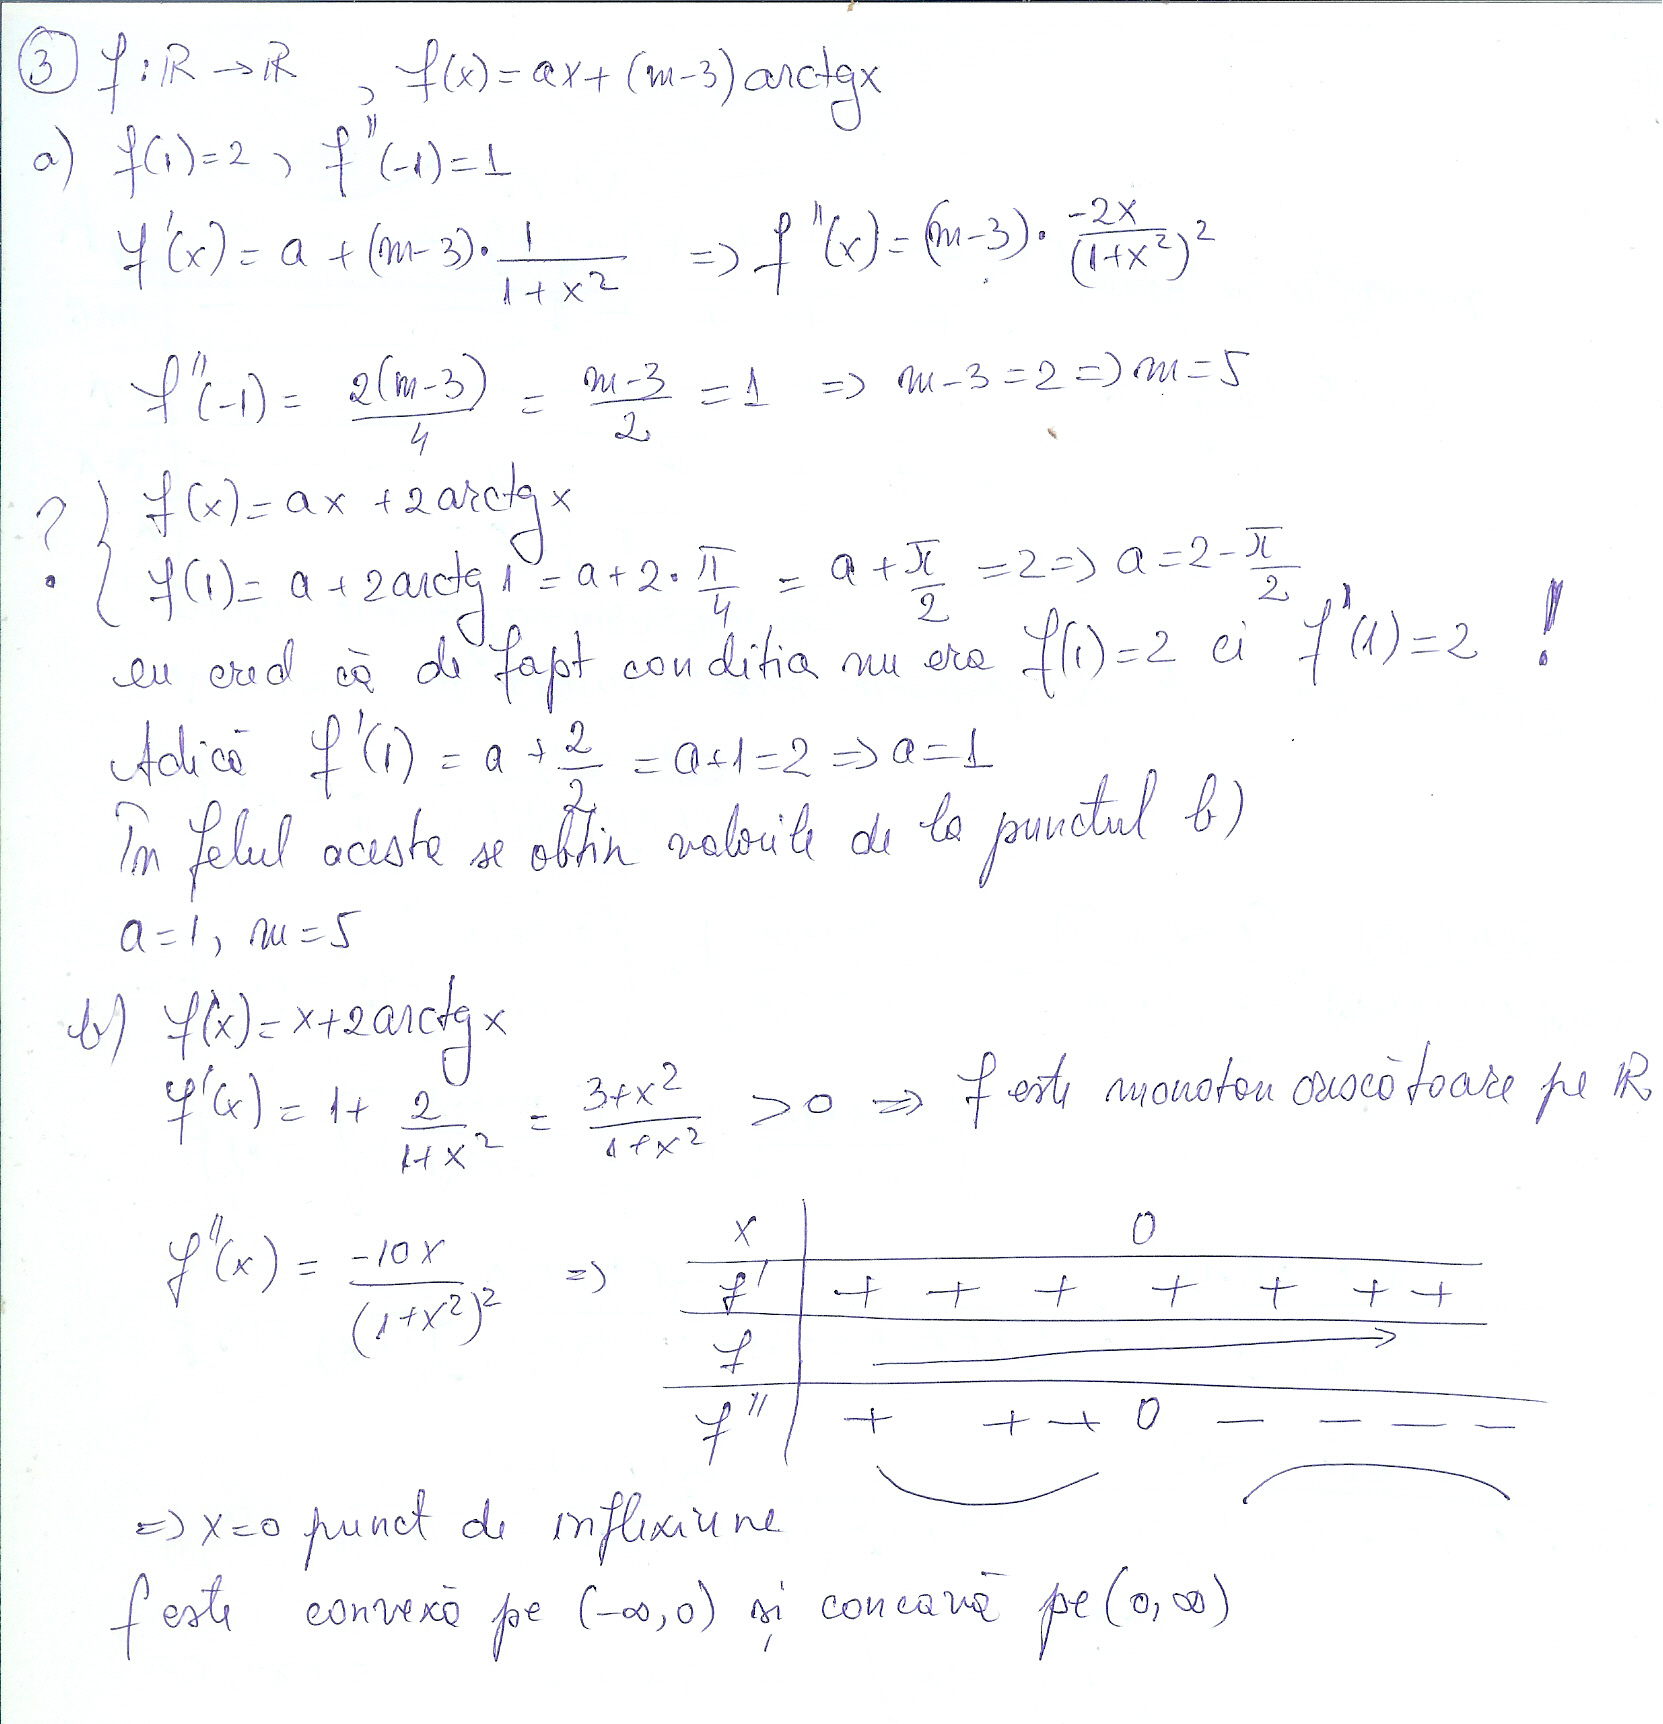 ③ f:ℝ→ℝ , f(x)=ax+(m-3)arctgx
a) f(1)=2, f''(-1)=1
f'(x)=a+(m-3)·1/(1+x²) ⇒ f''(x)=(m-3)·-2x/(1+x²)²
f''(-1)=2(m-3)/4=(m-3)/2=1 ⇒ m-3=2⇒m=5
? { f(x)=ax+2arctgx
f(1)=a+2arctg1=a+2·π/4=a+π/2=2⇒a=2-π/2
eu cred că de fapt conditia nu era f(1)=2 ci f'(1)=2 !
Adică f'(1)=a+2/2=a+1=2⇒a=1
În felul acesta se obtin valorile de la punctul b)
a=1, m=5
b) f(x)=x+2arctgx
f'(x)=1+2/(1+x²)=(3+x²)/(1+x²)>0 ⇒ f este monoton crescătoare pe ℝ
f''(x)=-10x/(1+x²)² ⇒
x 0
f' + + + + + + +
f
f'' + + + 0 - - - -
⇒x=0 punct de inflexiune
f este convexă pe (-∞,0) și concavă pe (0,∞)